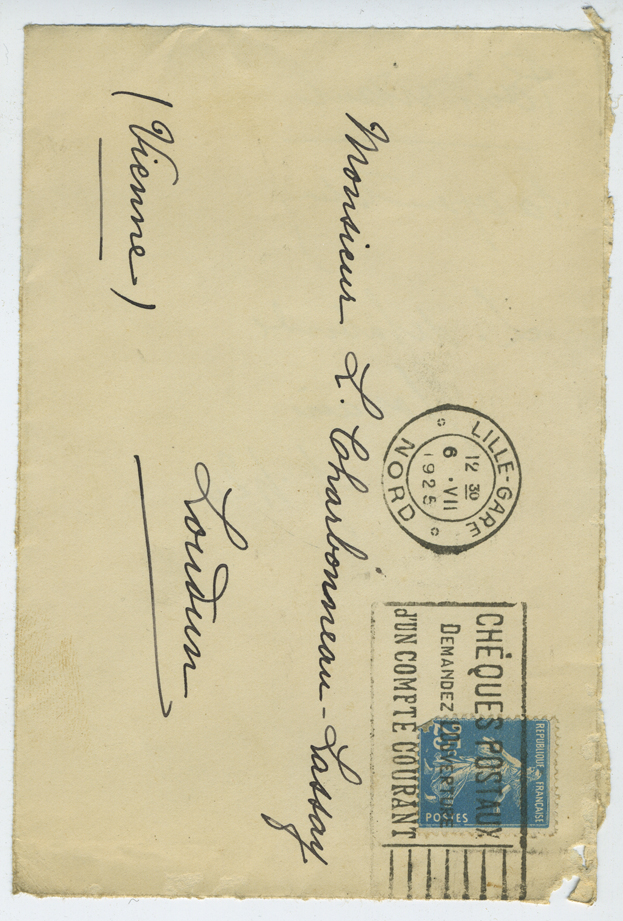 LILLE-GARE
12 30
6 · VII
1925
NORD
CHÈQUES POSTAUX
DEMANDEZ L'OUVERTURE
D'UN COMPTE COURANT
REPUBLIQUE FRANÇAISE
25c
POSTES
Monsieur L. Charbonneau-Lassay
Loudun
(Vienne)